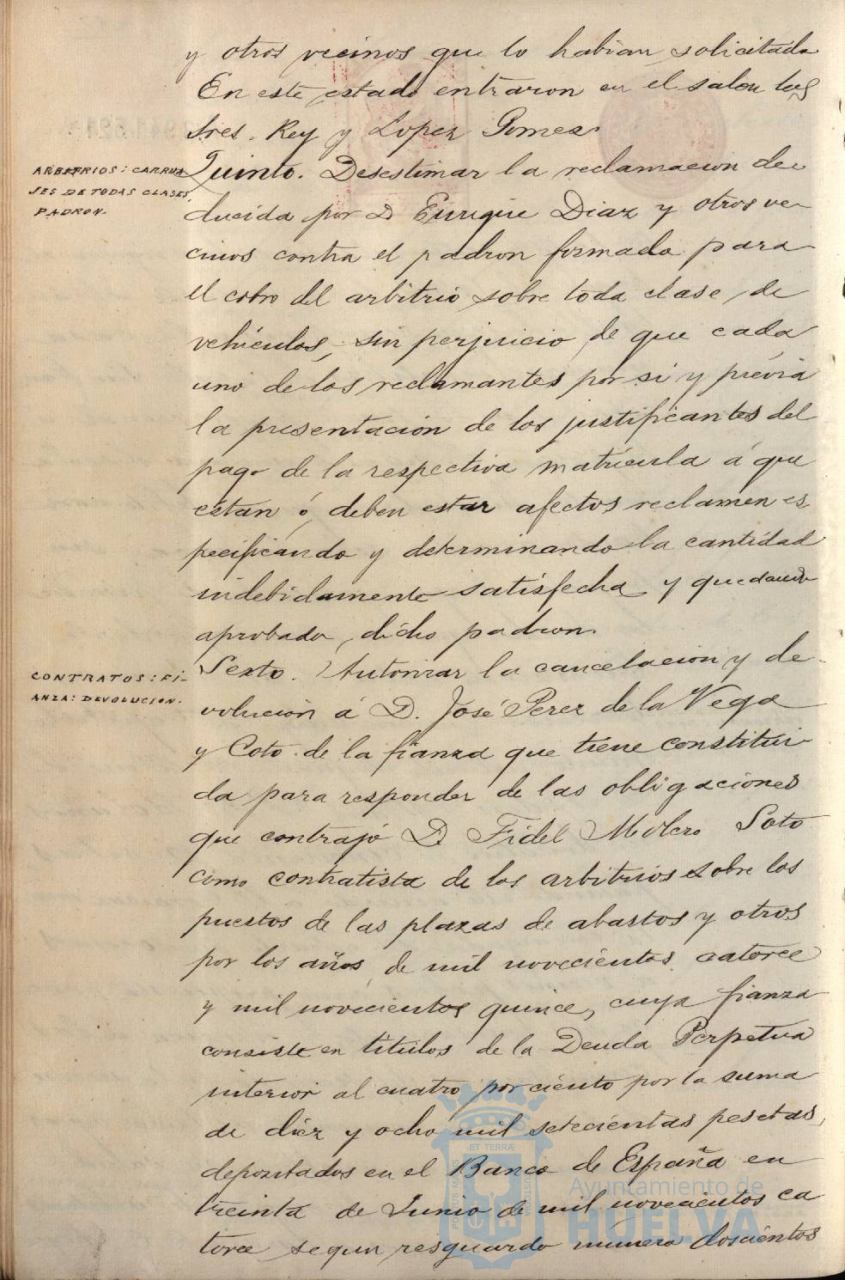 y otros vecinos que lo habian solicitado
En este estado entraron en el salon los
Sres. Rey y Lopez Gomez.
ARBITRIOS: CARRUA
JES DE TODAS CLASES.
PADRON.
Quinto. Desestimar la reclamacion de-
ducida por D Enrique Diaz y otros ve-
cinos contra el padron formado para
el cobro del arbitrio sobre toda clase de
vehículos, sin perjuicio de que cada
uno de los reclamantes por si y prévia
la presentación de los justificantes del
pago de la respectiva matrícula á que
estan ó deben estar afectos reclamen es
pecificando y determinando la cantidad
indebidamente satisfecha y quedando
aprobado dicho padron.
CONTRATOS: FI-
ANZA: DEVOLUCION.
Sexto. Autorizar la cancelacion y de-
volución á D. José Perez de la Vega
y Coto de la fianza que tiene constitui-
da para responder de las obligaciones
que contrajó D. Fidel Molero Soto
como contratista de los arbitrios sobre los
puestos de las plazas de abastos y otros
por los años de mil novecientos catorce
y mil novecientos quince, cuya fianza
consiste en titulos de la Deuda Perpetua
interior al cuatro por ciento por la suma
de diez y ocho mil setecientas pesetas,
depositados en el Banco de España en
treinta de Junio de mil novecientos ca
torce segun resguardo número doscientos
Ayuntamiento de
HUELVA